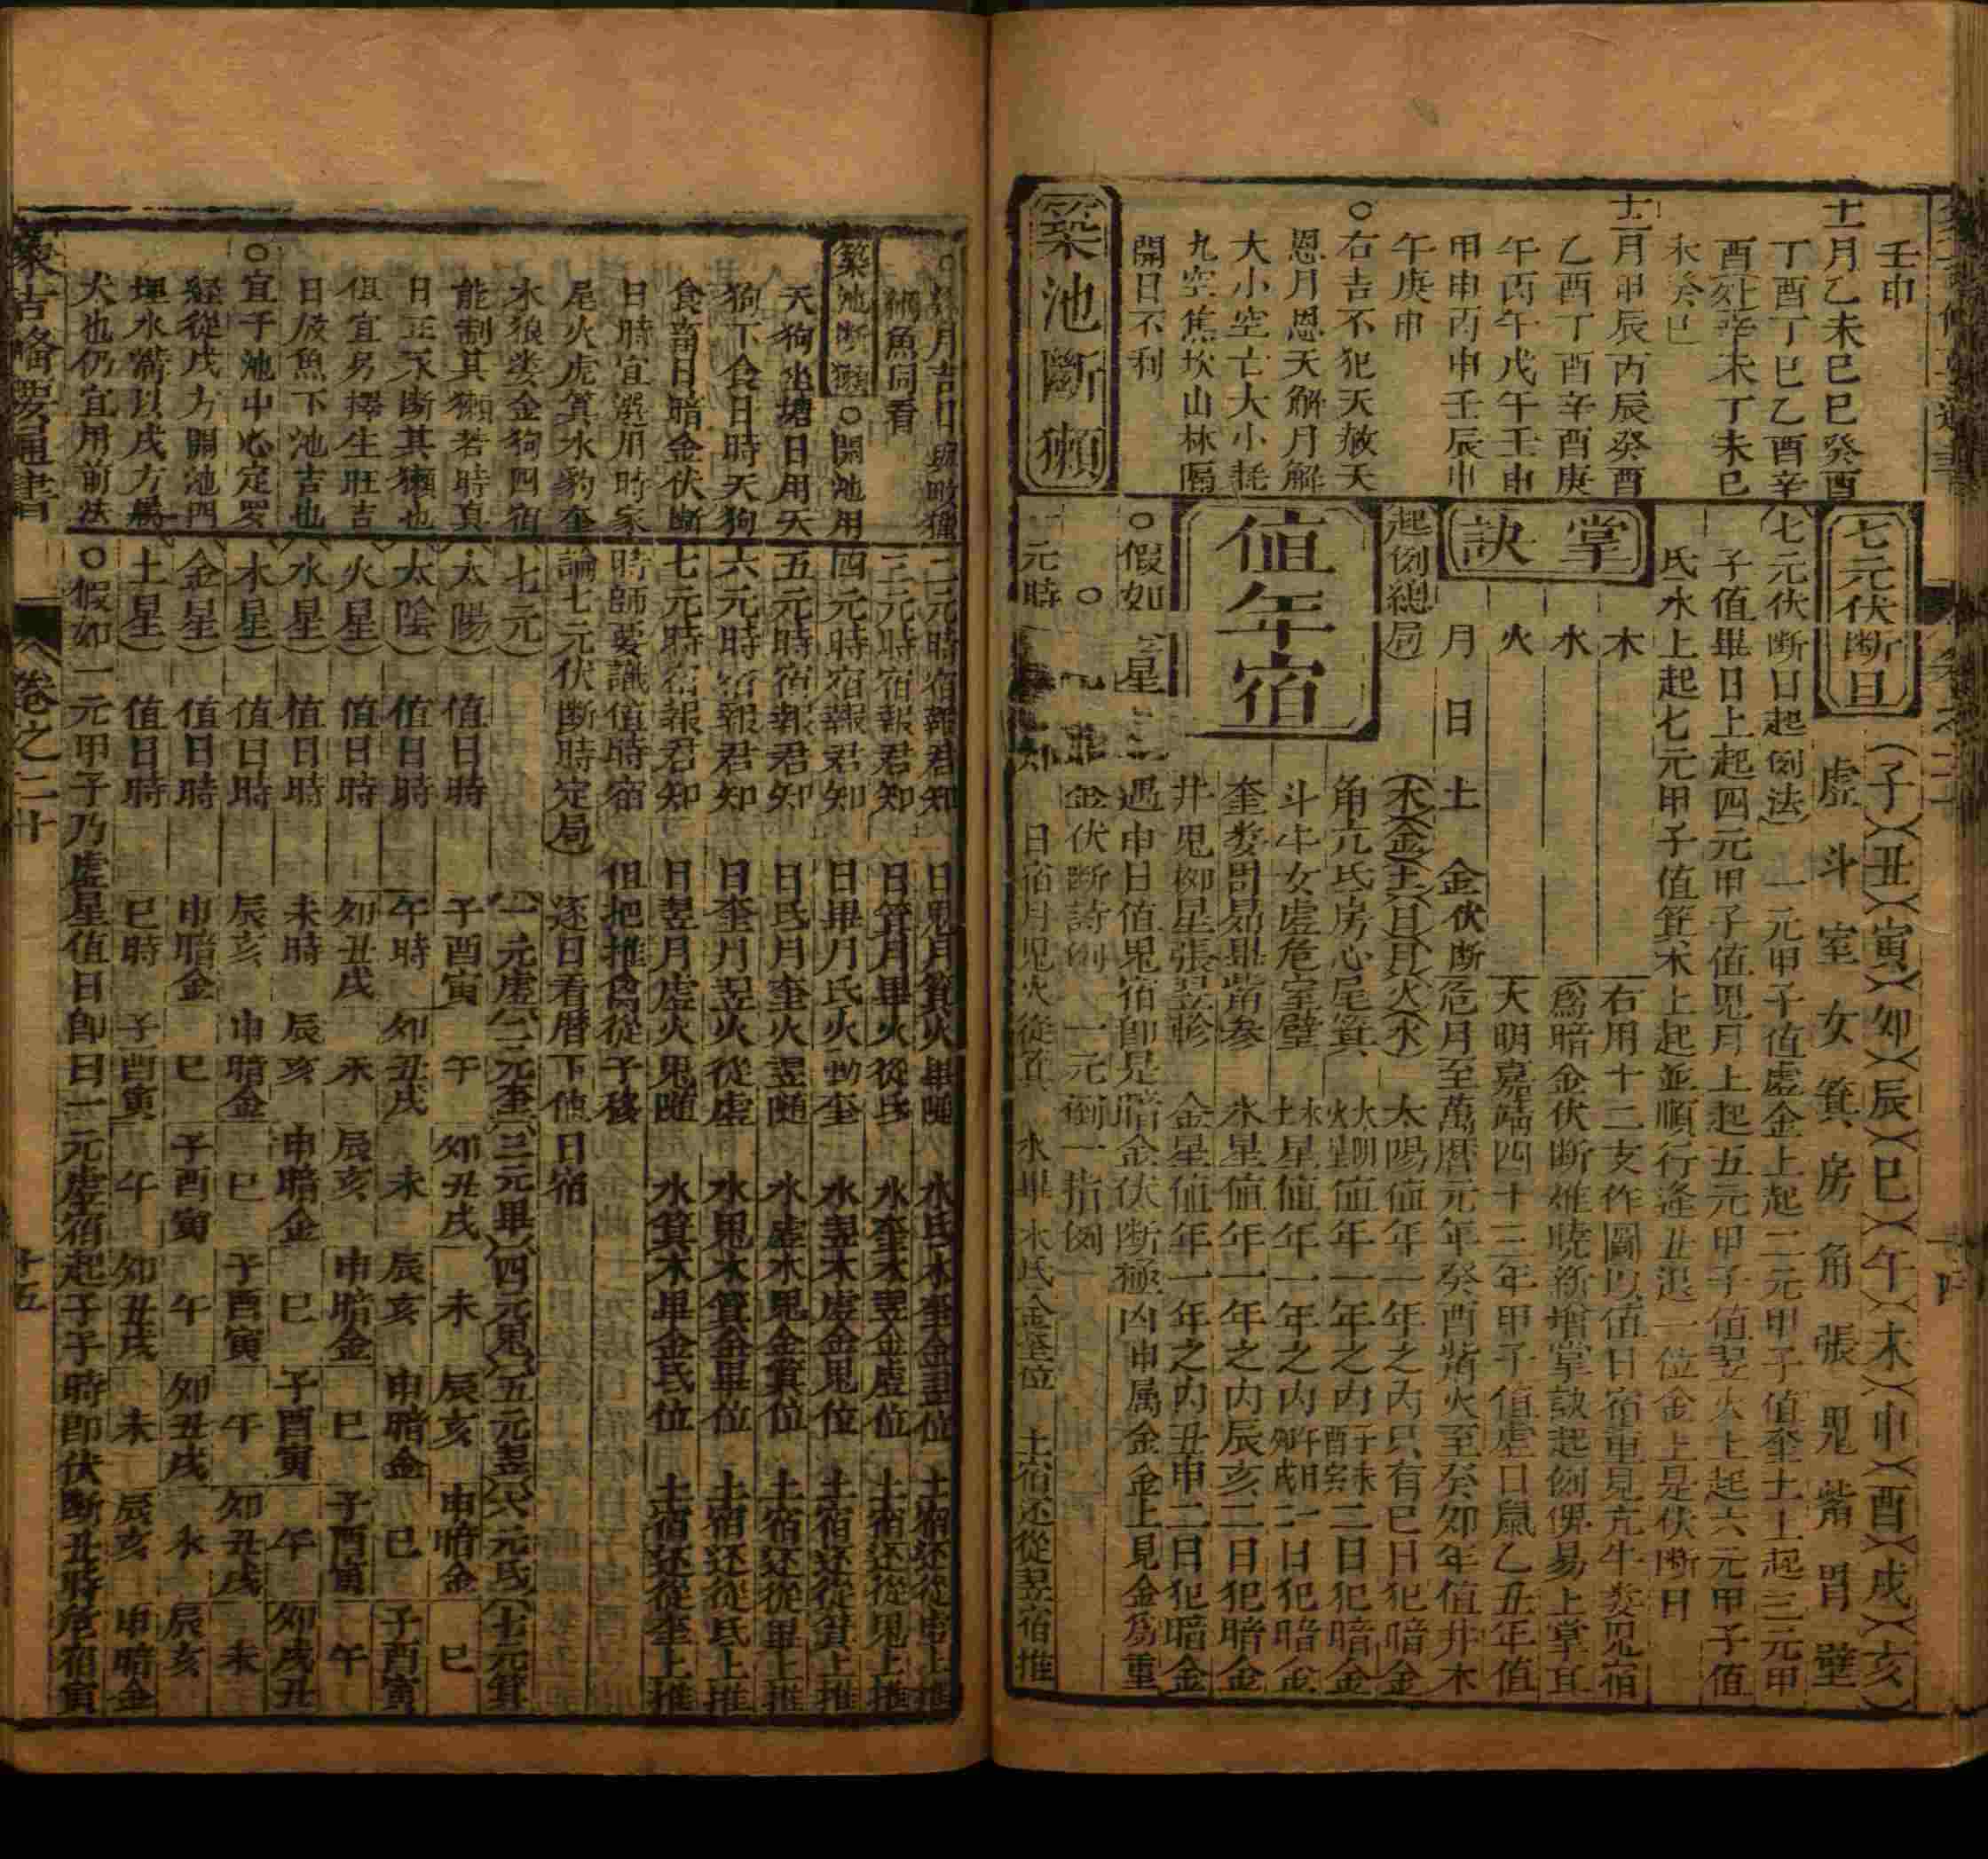 壬申
十一月乙未己巳癸酉
丁酉丁巳乙酉辛
未癸巳
十二月甲辰丙辰癸酉
乙酉丁酉辛酉庚
午丙午戊午壬申
甲申丙申壬辰
午庚申
○右吉不犯天赦天
恩月恩天解月解
大小空亡大小耗
九空焦坎山林隔
開日不利
築池斷獺
七元伏断日
(子)(丑)(寅)(卯)(辰)(巳)(午)(未)(申)(酉)(戌)(亥)
虛斗室女箕房角張鬼觜胃壁
(七元伏断日起例法)一元甲子值虛金上起二元甲子值奎土上起三元甲
子值畢日上起四元甲子值鬼月上起五元甲子值翌火上起六元甲子值
氐水上起七元甲子值箕木上起並順行逢丑退一位金上是伏断日
掌訣
木
水
火
月日土金伏断
右用十二支作圖以值日宿重見亢牛婁鬼宿
為暗金伏断难曉新增掌訣起例甚易上掌耳
大明嘉靖四十三年甲子值虛日鼠乙丑年值
危月至萬曆元年癸酉觜火至癸卯年值井木
起例總局
(木)(金)(土)(日)(月)(火)(水)太陽值年一年之內只有巳日犯暗金
值年宿
角亢氐房心尾箕
斗牛女虛危室璧
奎婁胃昴畢觜参水星值年一年之內辰亥二日犯暗金
井鬼柳星張翌軫金星值年一年之內丑申二日犯暗金
○假如
遇申日值鬼宿即是暗金伏断極凶申属金金上見金為重
金伏断詩例一元衝一指例
日宿月鬼火從箕水畢木氐金奎位土宿还從翌宿推
獺魚同看
築池断獺○開池用
天狗坐塘日用天
狗下食日時天狗
食畜日暗金伏断
日時宜選用時家
尾火虎箕水豹奎
木狼娄金狗四宿
能制其獺若時真
日正不断其獺也
但宜另擇生旺吉
日放魚下池吉也
○宜于池中心定羅
經從戌方開池門
埋水溝以戌方屬
犬也仍宜用前法
二元時宿報君知日鬼月箕火畢随水氐木奎金翌位土宿还從虛上推
三元時宿報君知日箕月畢火從氐水奎木翌金虛位土宿还從鬼上推
四元時宿報君知日畢月氐火動奎水翌木虛金鬼位土宿还從箕上推
五元時宿報君知日氐月奎火翌随水虛木鬼金箕位土宿还從畢上推
六元時宿報君知日奎月翌火從虛水鬼木箕金畢位土宿还從氐上推
七元時宿報君知日翌月虛火鬼随水箕木畢金氐位土宿还從奎上推
時師要識值時宿但把推禽從子移
論七元伏断時定局)逐日看曆下值日宿
(七元)(一元虛)(二元奎)(三元畢)(四元鬼)(五元翌)(六元氐)(七元箕
(太陽)值日時子酉寅午卯丑戌未辰亥申暗金巳
(太陰)值日時午時卯丑戌未辰亥申暗金巳子酉寅
(火星)值日時卯丑戌未辰亥申暗金巳子酉寅午
(水星)值日時未時辰亥申暗金巳子酉寅午卯戌丑
(木星)值日時辰亥申暗金巳子酉寅午卯丑戌未
(金星)值日時申暗金巳子酉寅午卯丑戌未辰亥
(土星)值日時巳時子酉寅午卯丑戌未辰亥申暗金
○假如一元甲子乃虛星值日即日一元虛宿起子子時即伏断丑時危宿寅
象吉備要通書
卷之二十
十五